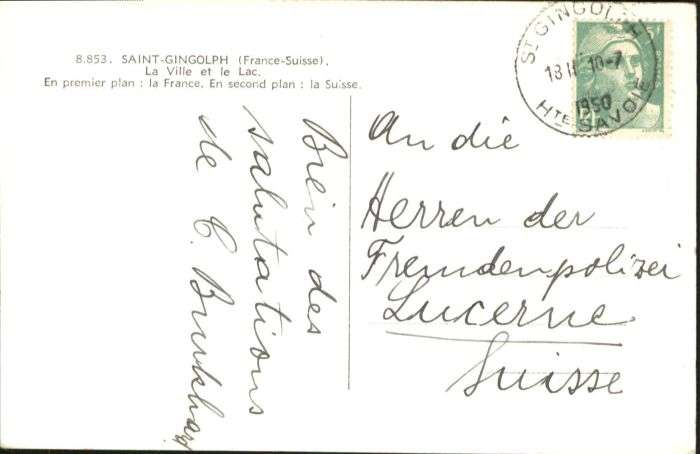 8.853. SAINT-GINGOLPH (France-Suisse).
La Ville et le Lac.
En premier plan : la France. En second plan : la Suisse.
Bien des
salutations
de C. Burkhard
ST GINGOLPH
18 H 10-7
1950
HTE SAVOIE
5F
An die
Herren der
Fremdenpolizei
Lucerne
Suisse